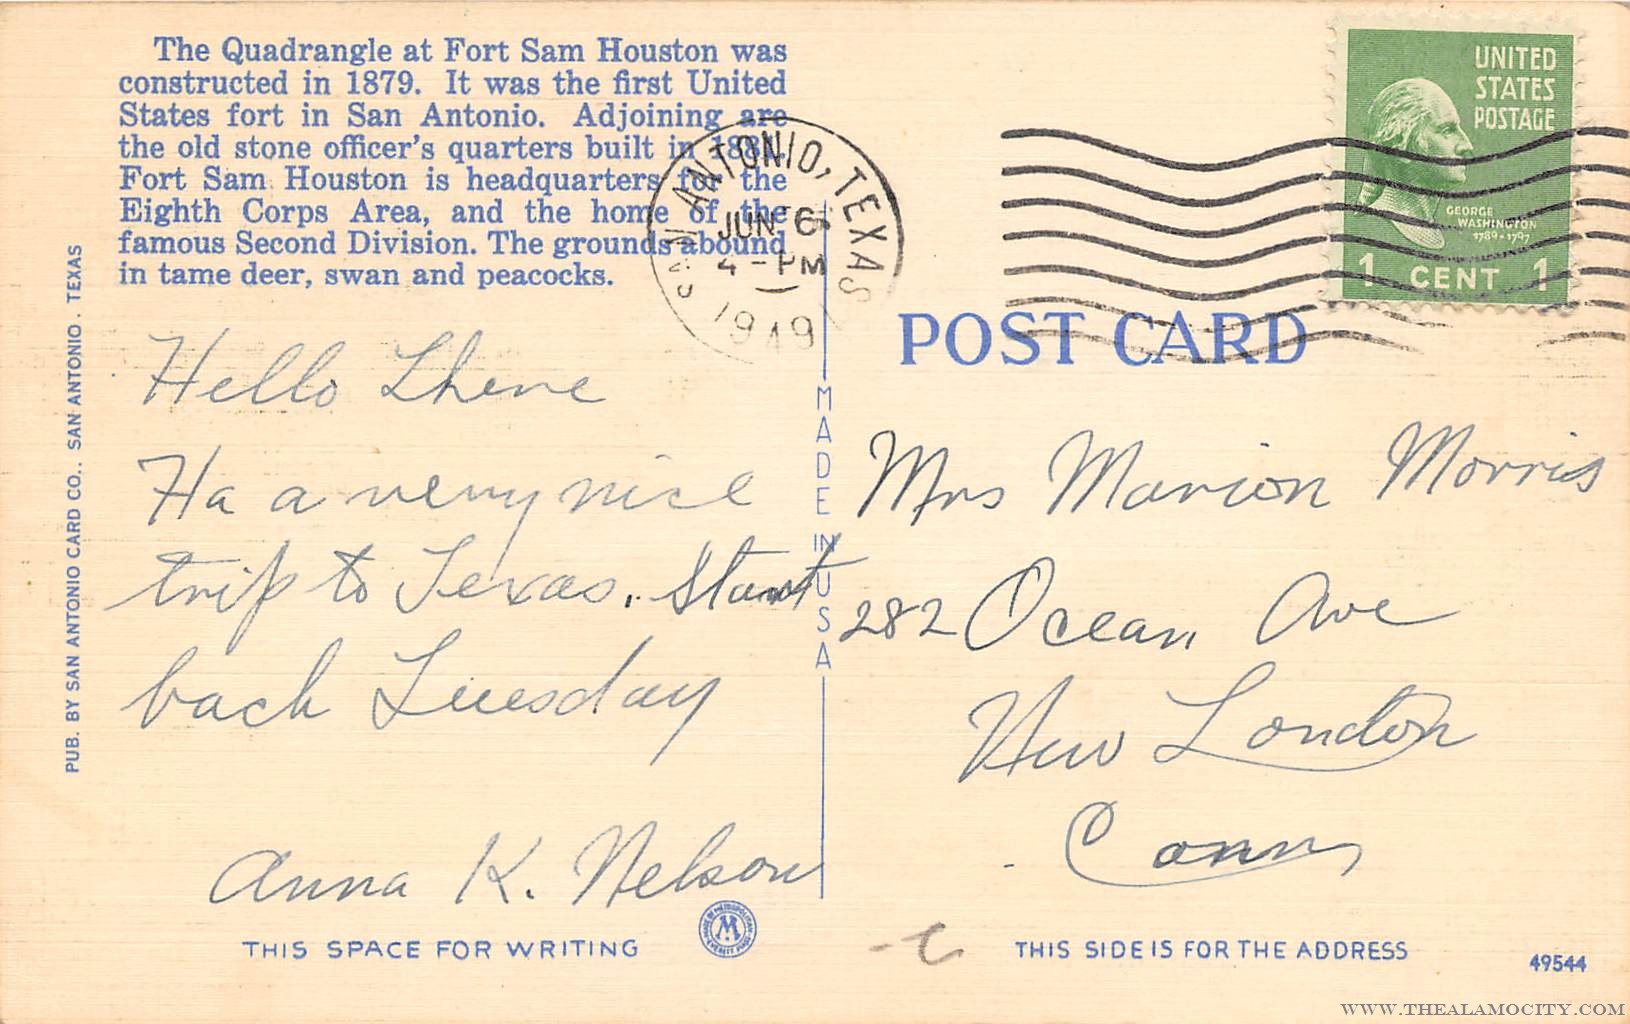 The Quadrangle at Fort Sam Houston was
constructed in 1879. It was the first United
States fort in San Antonio. Adjoining are
the old stone officer's quarters built in 1881.
Fort Sam Houston is headquarters for the
Eighth Corps Area, and the home of the
famous Second Division. The grounds abound
in tame deer, swan and peacocks.
PUB. BY SAN ANTONIO CARD CO., SAN ANTONIO, TEXAS
SAN ANTONIO, TEXAS
JUN 6
4 - PM
1949
UNITED
STATES
POSTAGE
GEORGE
WASHINGTON
1789-1797
1 CENT 1
POST CARD
MADE IN U S A
Hello There
Ha a very nice
trip to Texas. Start
back Tuesday
Anna K. Nelson
Mrs Marion Morris
282 Ocean Ave
New London
Conn,
THIS SPACE FOR WRITING
MADE BY METROPOLITAN
M
EVERETT MASS
THIS SIDE IS FOR THE ADDRESS
49544
WWW.THEALAMOCITY.COM